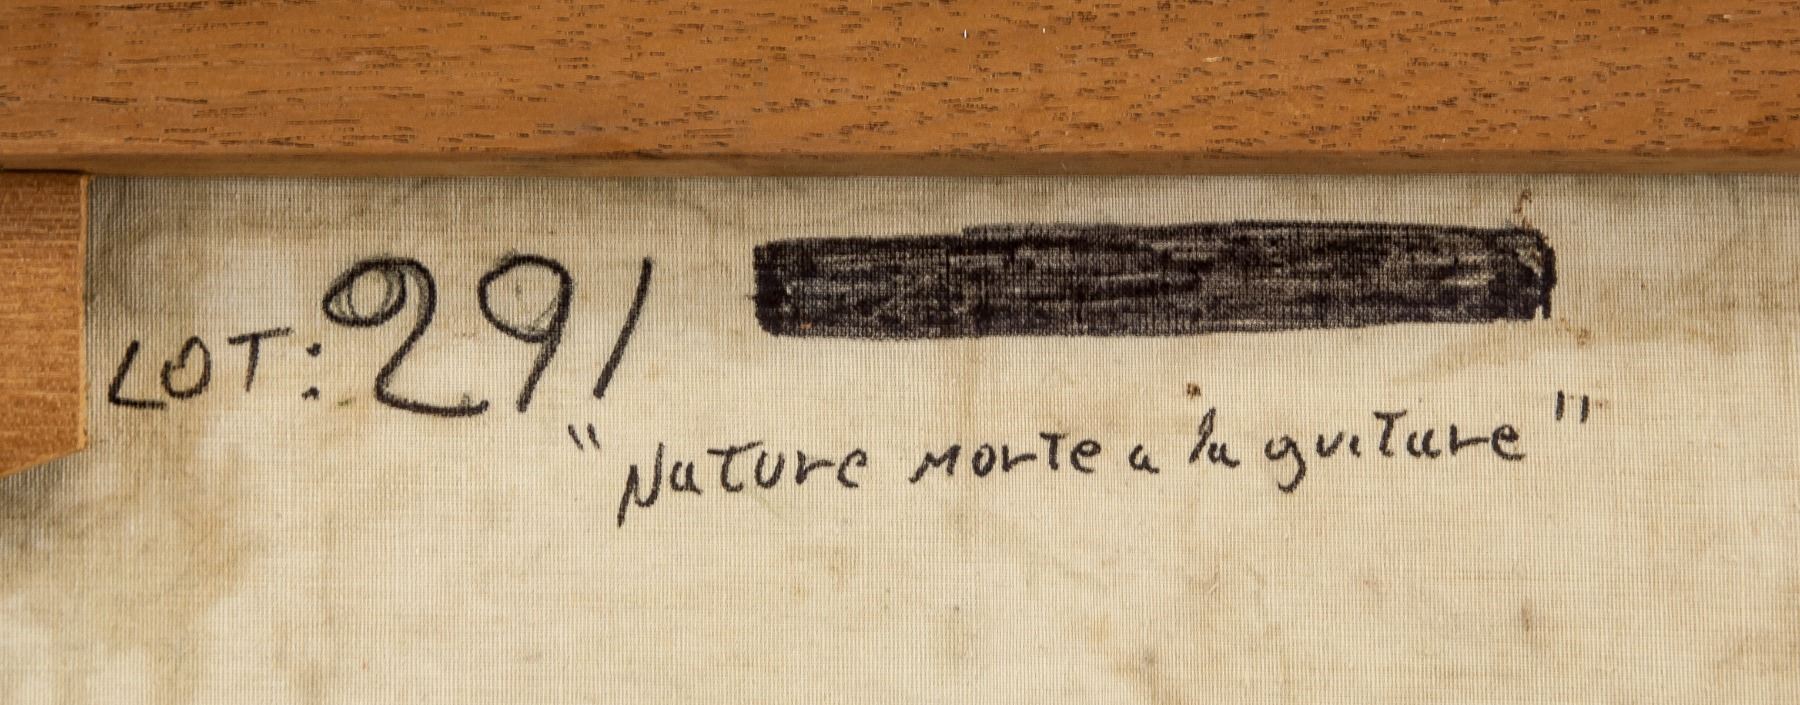 LOT: 291
"Nature morte a la guitare"